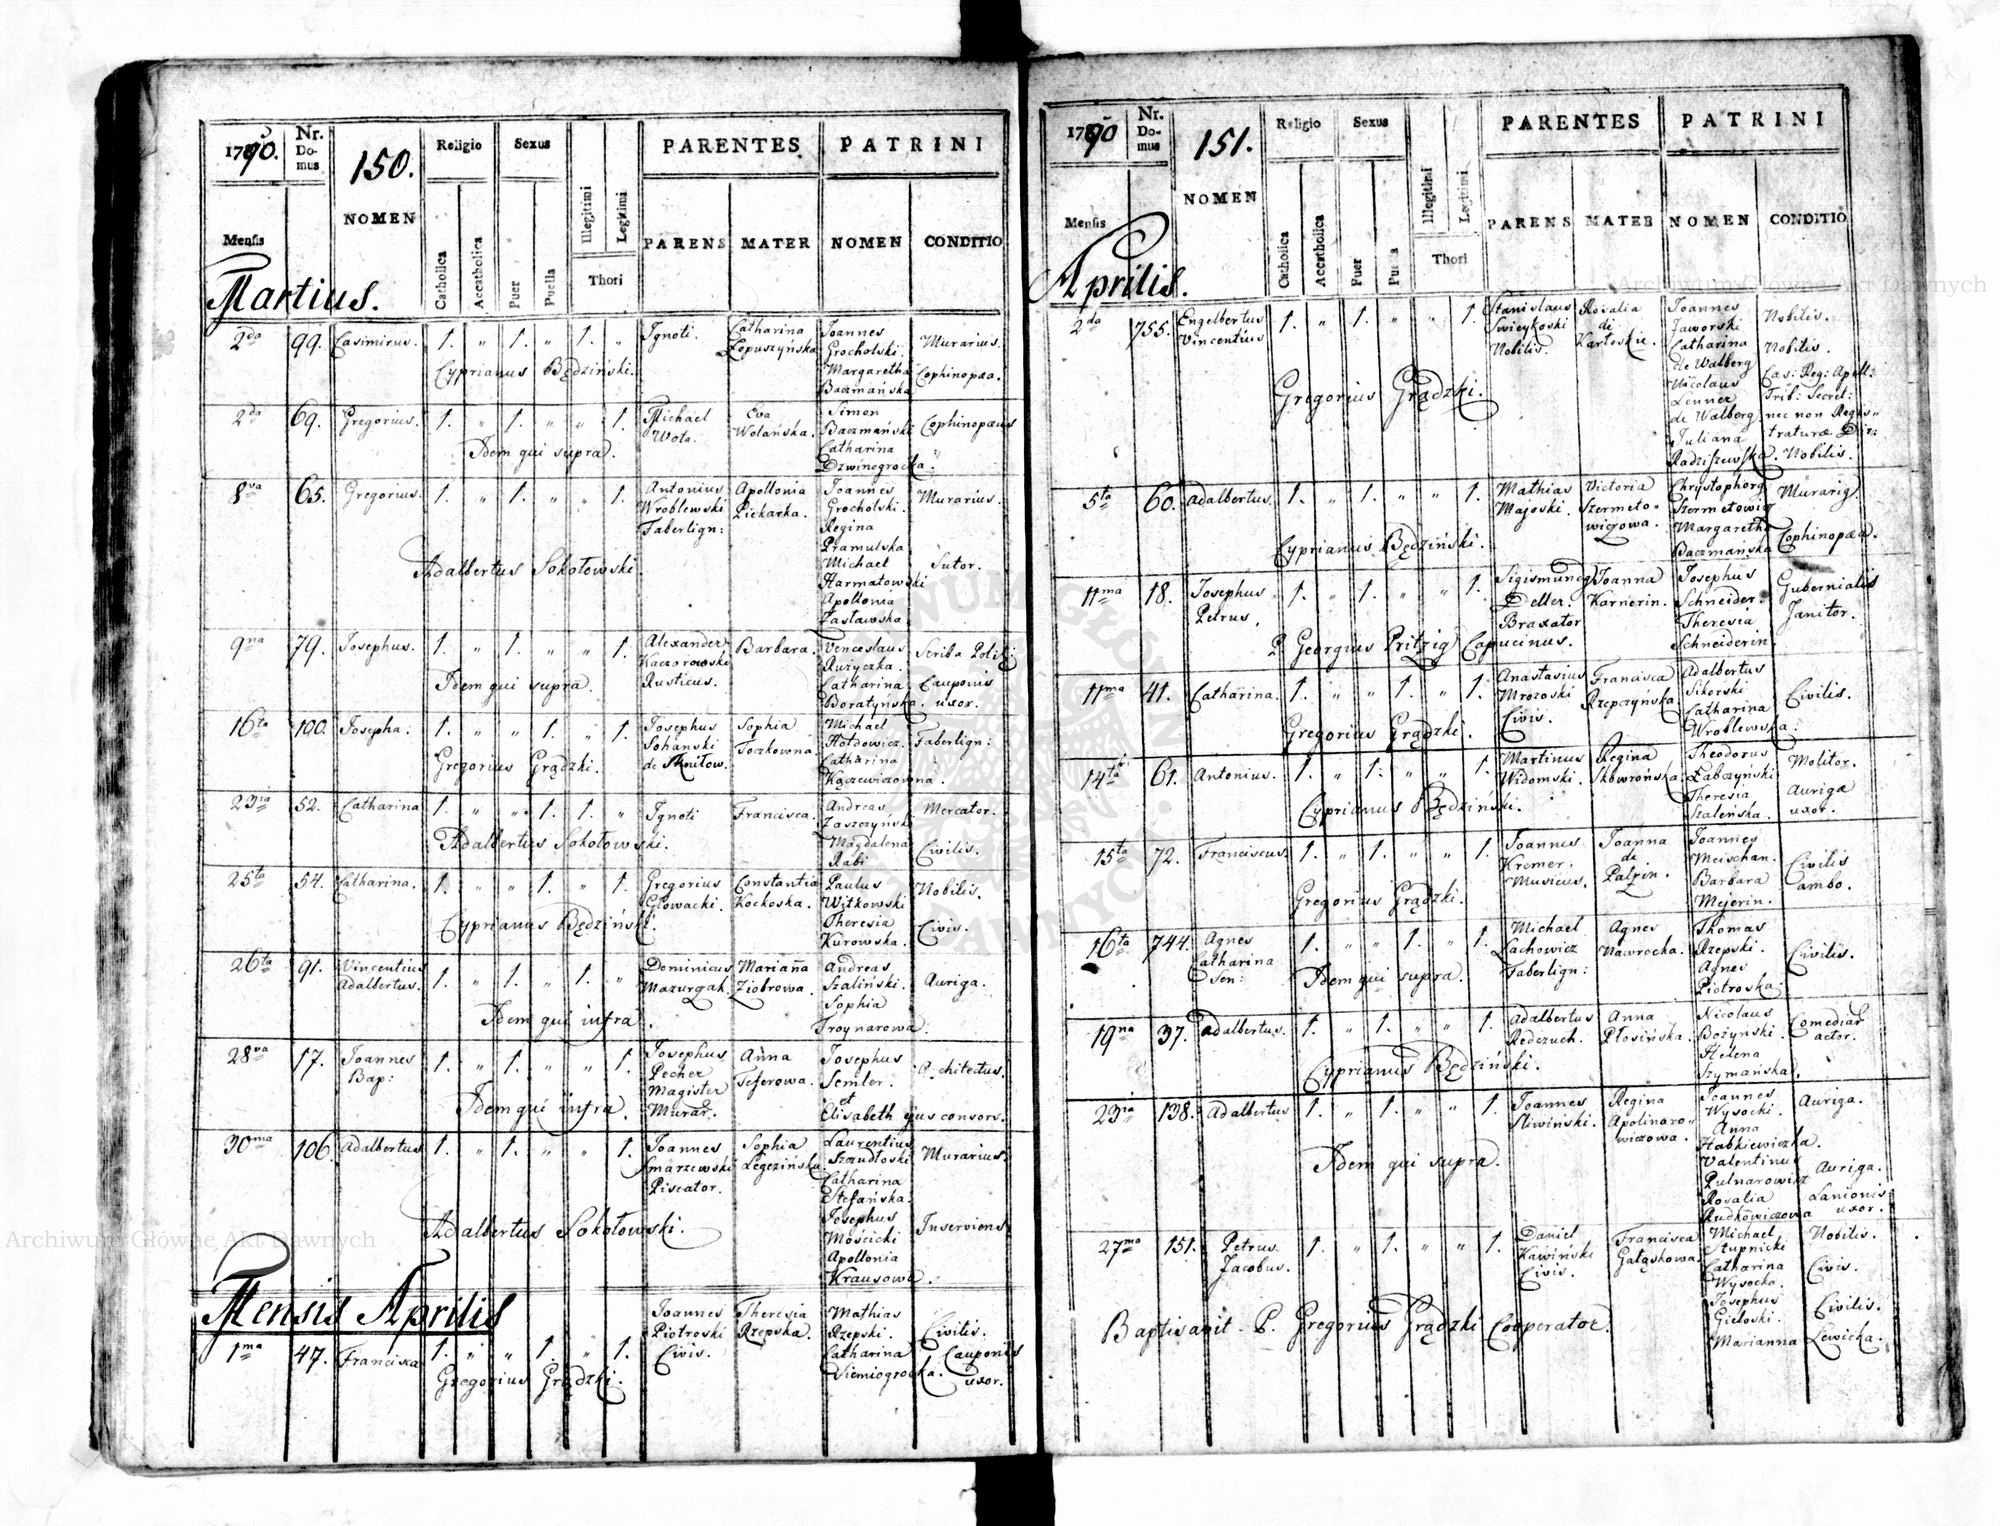 1790.
Nr. Domus
150.
NOMEN
Religio
Sexus
Illegitimi
Legitimi
PARENTES
PATRINI
Mensis
Catholica
Accatholica
Puer
Puella
Thori
PARENS
MATER
NOMEN
CONDITIO
Martius.
2da 99. Casimirus. 1. " 1. " 1. " Ignoti. Catharina Łopuszyńska Joannes Grocholski. Murarius.
Margaretha Baczmańska Cophinopæa.
Cyprianus Będziński.
2da 69. Gregorius. 1. " 1. " " 1. Michael Wota. Eva Wolańska. Simon Baczmański Cophinopæus
Catharina Dzwinogrocka.
Idem qui supra.
8va 65. Gregorius. 1. " 1. " " 1. Antonius Wroblewski Faberlign: Apollonia Piekarka. Joannes Grocholski. Murarius.
Regina Pramulska
Michael Harmatowski Sutor.
Apollonia Zasławska
Adalbertus Sokołowski.
9na 79. Josephus. 1. " 1. " " 1. Alexander Kaczorowski Rusticus. Barbara. Venceslaus Ružyczka. Scriba Politi
Catharina Boratyńska. Cauponis uxor.
Idem qui supra.
16ta 100. Josepha. 1. " " 1. " 1. Josephus Sohanski de Skniłow. Sophia Toczkowna. Michael Hołdowicz. Faberlign:
Catharina
Gregorius Grądzki.
23tia 52. Catharina 1. " " 1. 1. " Ignoti Francisca. Andreas Zaszczyński Mercator.
Magdalena Rabi Civilis.
Adalbertus Sokołowski.
25ta 54. Catharina. 1. " " 1. " 1. Gregorius Głowacki. Constantia Kockoska. Paulus Witkowski Nobilis.
Theresia Kurowska. Civis.
Cyprianus Będziński.
26ta 91. Vincentius Adalbertus. 1. " 1. " 1. " Dominicus Mazurzak. Marianna Ziobrowa. Andreas Szaliński. Auriga.
Sophia Troynarowa.
Idem qui infra.
28va 17. Joannes Bap: 1. " 1. " " 1. Josephus Pecher Magister Murar. Anna Teferowa. Josephus Semler. Architectus.
et
Elisabeth ejus consors.
Idem qui infra.
30ma 106. Adalbertus 1. " 1. " " 1. Joannes Smarzewski Piscator. Sophia Legezińska Laurentius Szczudłoski Murarius.
Catharina Stefańska.
Josephus Mościcki Inserviens.
Apollonia Krausowa.
Adalbertus Sokołowski.
Mensis Aprilis
1ma 47. Francisca 1. " " 1. " 1. Joannes Piotroski Civis. Theresia Rzepska. Mathias Rzepski. Civilis.
Catharina Siemiogrocka. Cauponis uxor.
Gregorius Grądzki.
1790
Nr. Domus
151.
NOMEN
Religio
Sexus
Illegitimi
Legitimi
PARENTES
PATRINI
Mensis
Catholica
Accatholica
Puer
Puella
Thori
PARENS
MATER
NOMEN
CONDITIO
Aprilis.
2da 755. Engelbertus Vincentius 1. " 1. " " 1. Stanislaus Swieykoski Nobilis. Rosalia de Karłoskie. Joannes Jaworski Nobilis.
Catharina de Walberg Nobilis.
Nicolaus Lenner de Walberg Cæs: Reg: Apell: Trib: Secret: nec non Registraturæ Dir:
Juliana Radziszewska. Nobilis.
Gregorius Grądzki.
5ta 60. Adalbertus. 1. " 1. " " 1. Mathias Majoski. Victoria Szermetowiczowa. Chrystophorg Szermetowicz Murarig
Margaretha Baczmańska Cophinopæa.
Cyprianus Będziński.
11ma 18. Josephus Petrus. 1. " 1. " " 1. Sigismundg Deller. Braxator Joanna Karnerin. Josephus Schneider. Gubernialis Janitor.
Theresia Schneiderin.
P. Georgius Pritzig Capucinus.
11ma 41. Catharina. 1. " " 1. " 1. Anastasius Mrozoski Civis. Francisca Rzepczyńska Adalbertus Sikorski Civilis.
Catharina Wroblewska.
Gregorius Grądzki.
14ta 61. Antonius. 1. " 1. " " 1. Martinus Widomski. Regina Skowrońska Theodorus Łabczyński Molitor.
Theresia Szaleńska. Auriga uxor.
Cyprianus Będziński.
15ta 72. Franciscus. 1. " 1. " " 1. Joannes Kremer. Musicus. Joanna de Palpin. Joannes Meischan. Civilis ambo.
Barbara Mejerin.
Gregorius Grądzki.
16ta 744. Agnes Catharina Sen: 1. " " 1. " 1. Michael Lachowicz Faberlign: Agnes Nawrocka. Thomas Rzepski. Civilis.
Agnes Piotroska.
Idem qui supra.
19na 37. Adalbertus. 1. " 1. " " 1. Adalbertus Redczuch. Anna Płosińska. Nicolaus Bożynski. Comediar actor.
Helena Szymańska.
Cyprianus Będziński.
23tia 138. Adalbertus 1. " 1. " " 1. Joannes Sliwiński. Regina Apolinarowiczowa. Joannes Wysocki. Auriga.
Anna Habkiewiczka.
Valentinus Pulnarowicz Auriga.
Rosalia Rudkowiczowa Lanionis uxor.
Idem qui supra.
27ma 151. Petrus Jacobus. 1. " 1. " " 1. Daniel Kawiński Civis. Francisca Gałąskowa. Michael Stupnicki Nobilis.
Catharina Wysocka. Civis.
Josephus Gieloski. Civilis.
Marianna Lewicka.
Baptisavit P. Gregorius Grądzki Cooperator.
Archiwum Główne Akt Dawnych
Archiwum Główne Akt Dawnych